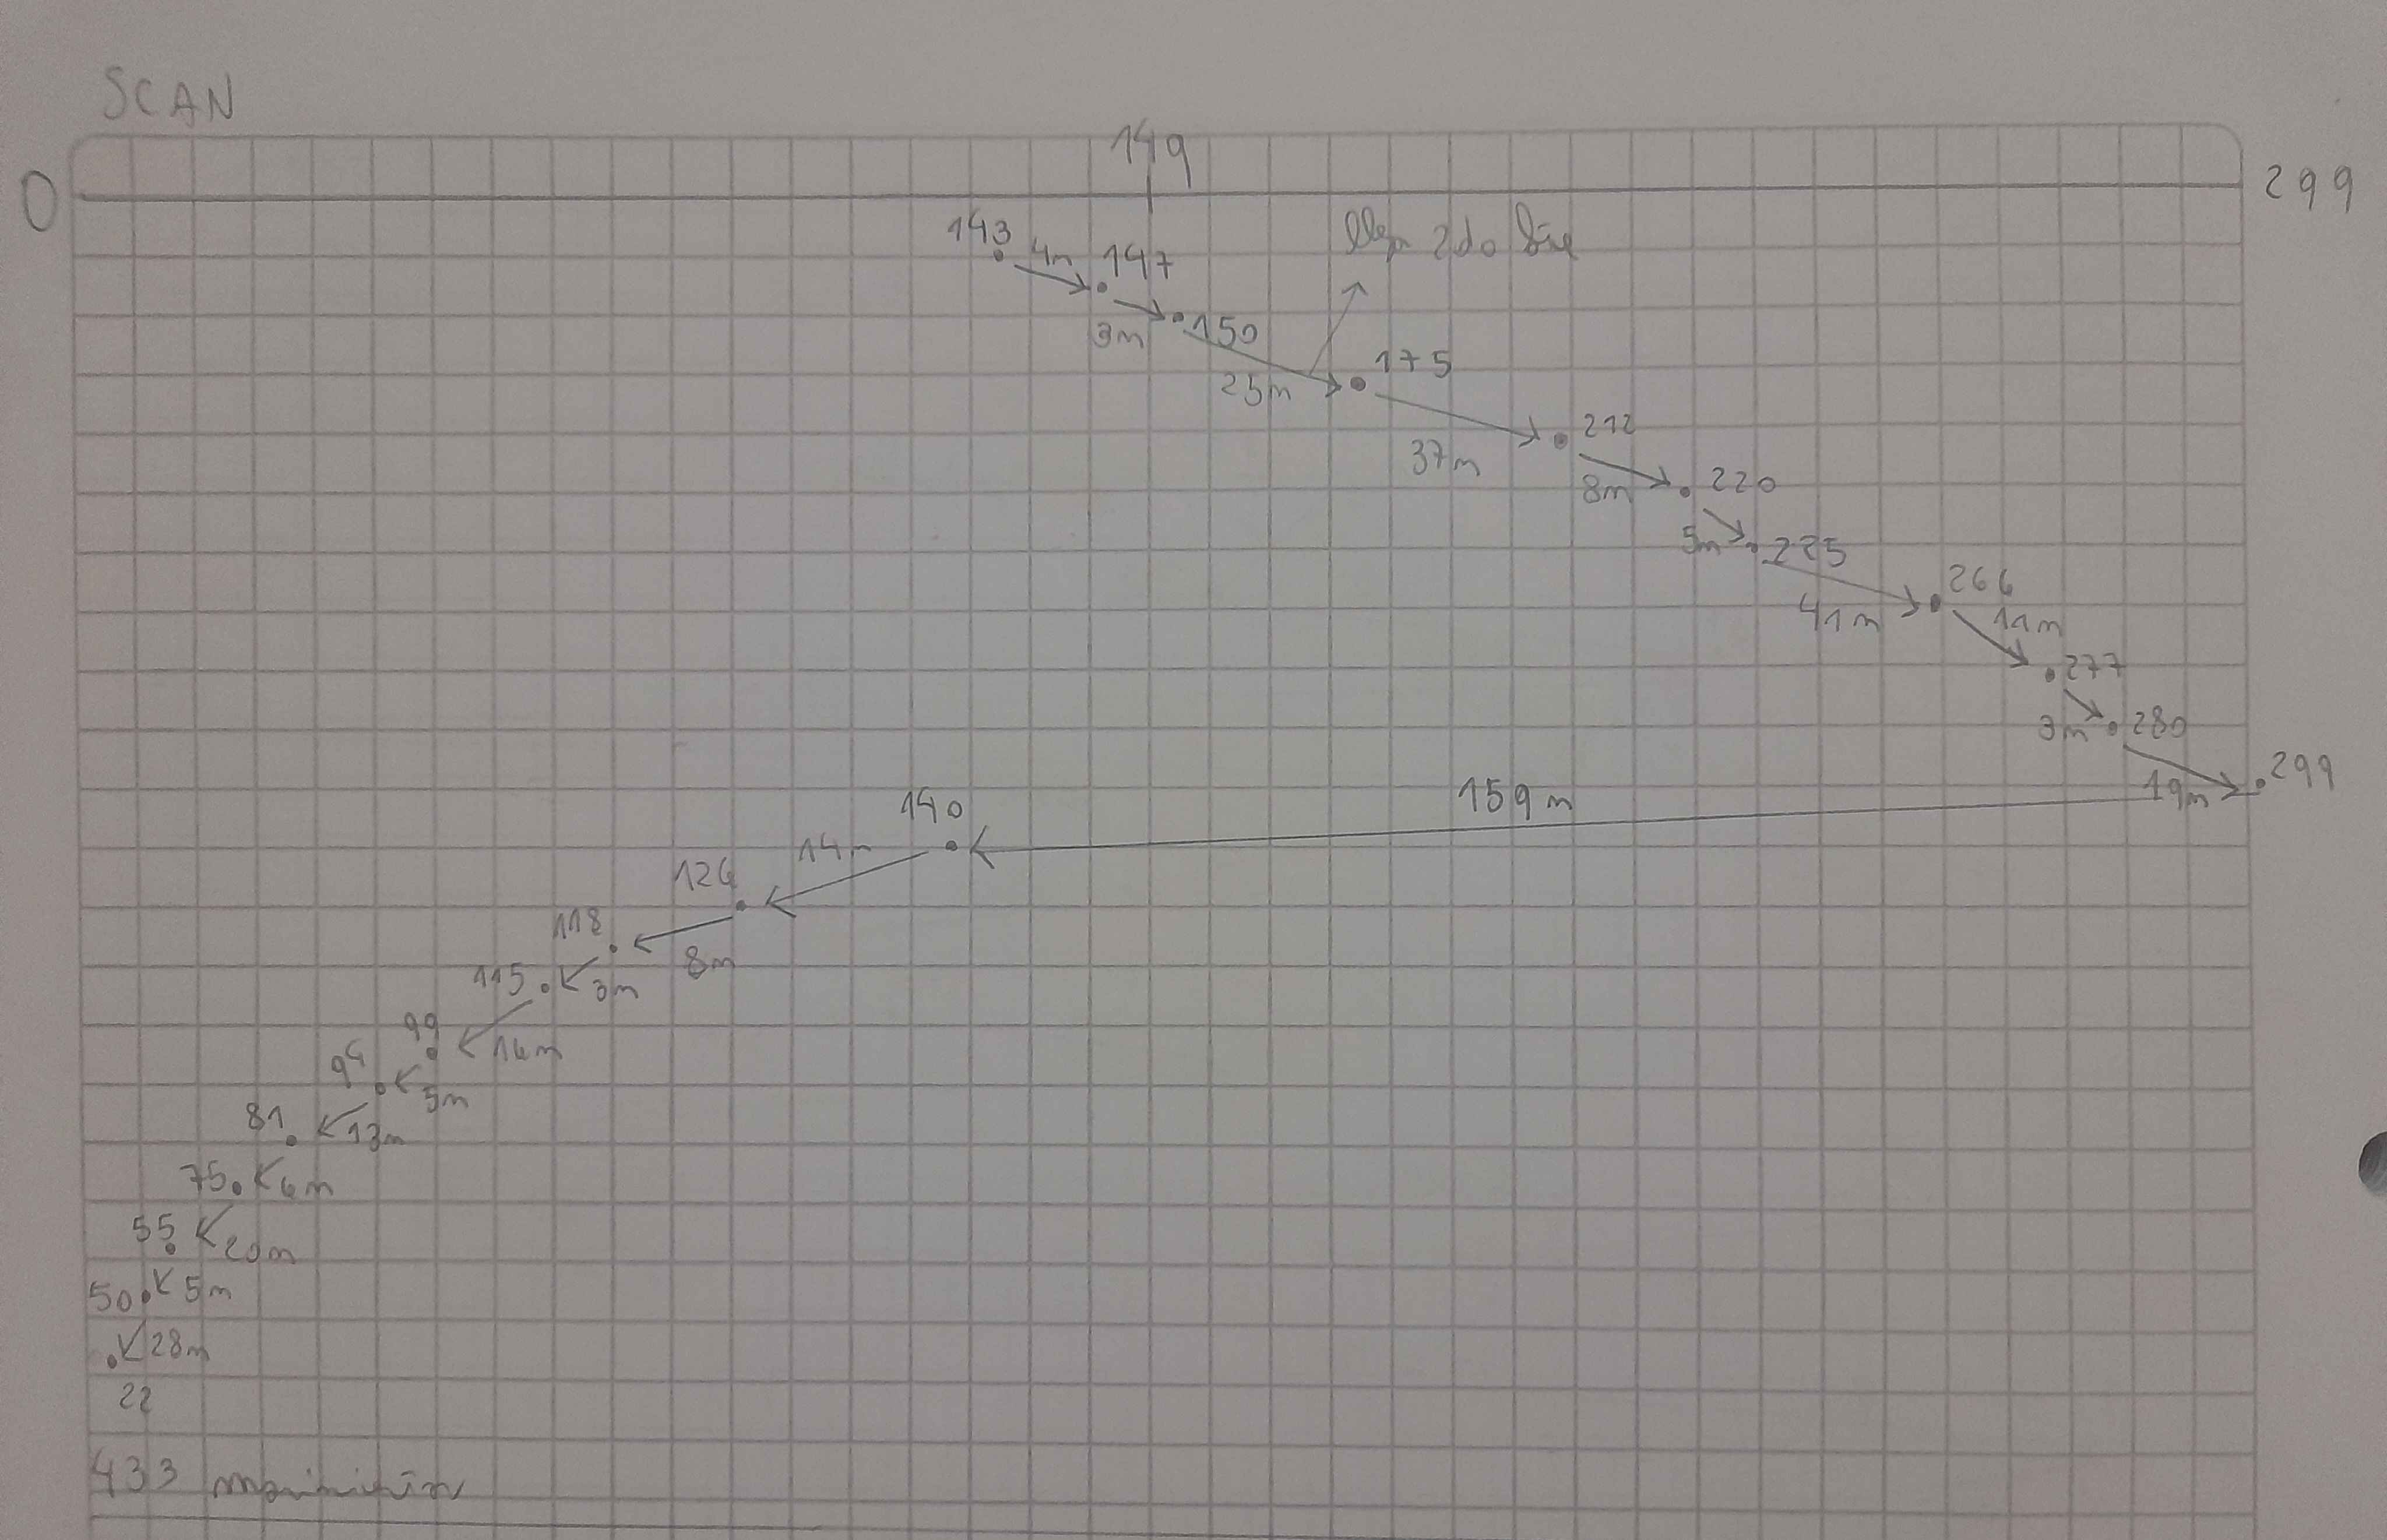 SCAN
149
0
299
143
4m
147
3m
150
2do
25m
175
37m
212
8m
220
5m
225
41m
266
11m
277
3m
280
19m
299
159m
140
14m
126
8m
118
3m
115
16m
99
5m
94
13m
81
6m
75
20m
55
5m
50
28m
22
433